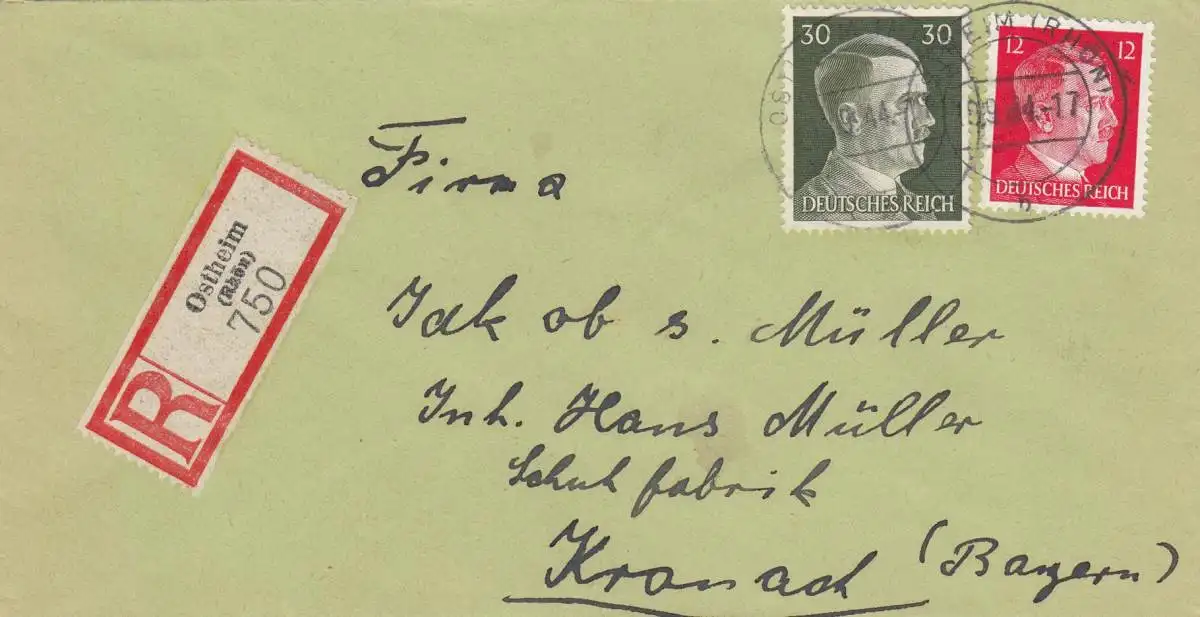 30 30
DEUTSCHES REICH
12 12
DEUTSCHES REICH
HEIM (RHÖN)
44-17
Ostheim
(Rhön)
750
R
Firma
Jakob s. Müller
Inh. Hans Müller
Schuhfabrik
Kronach (Bayern)